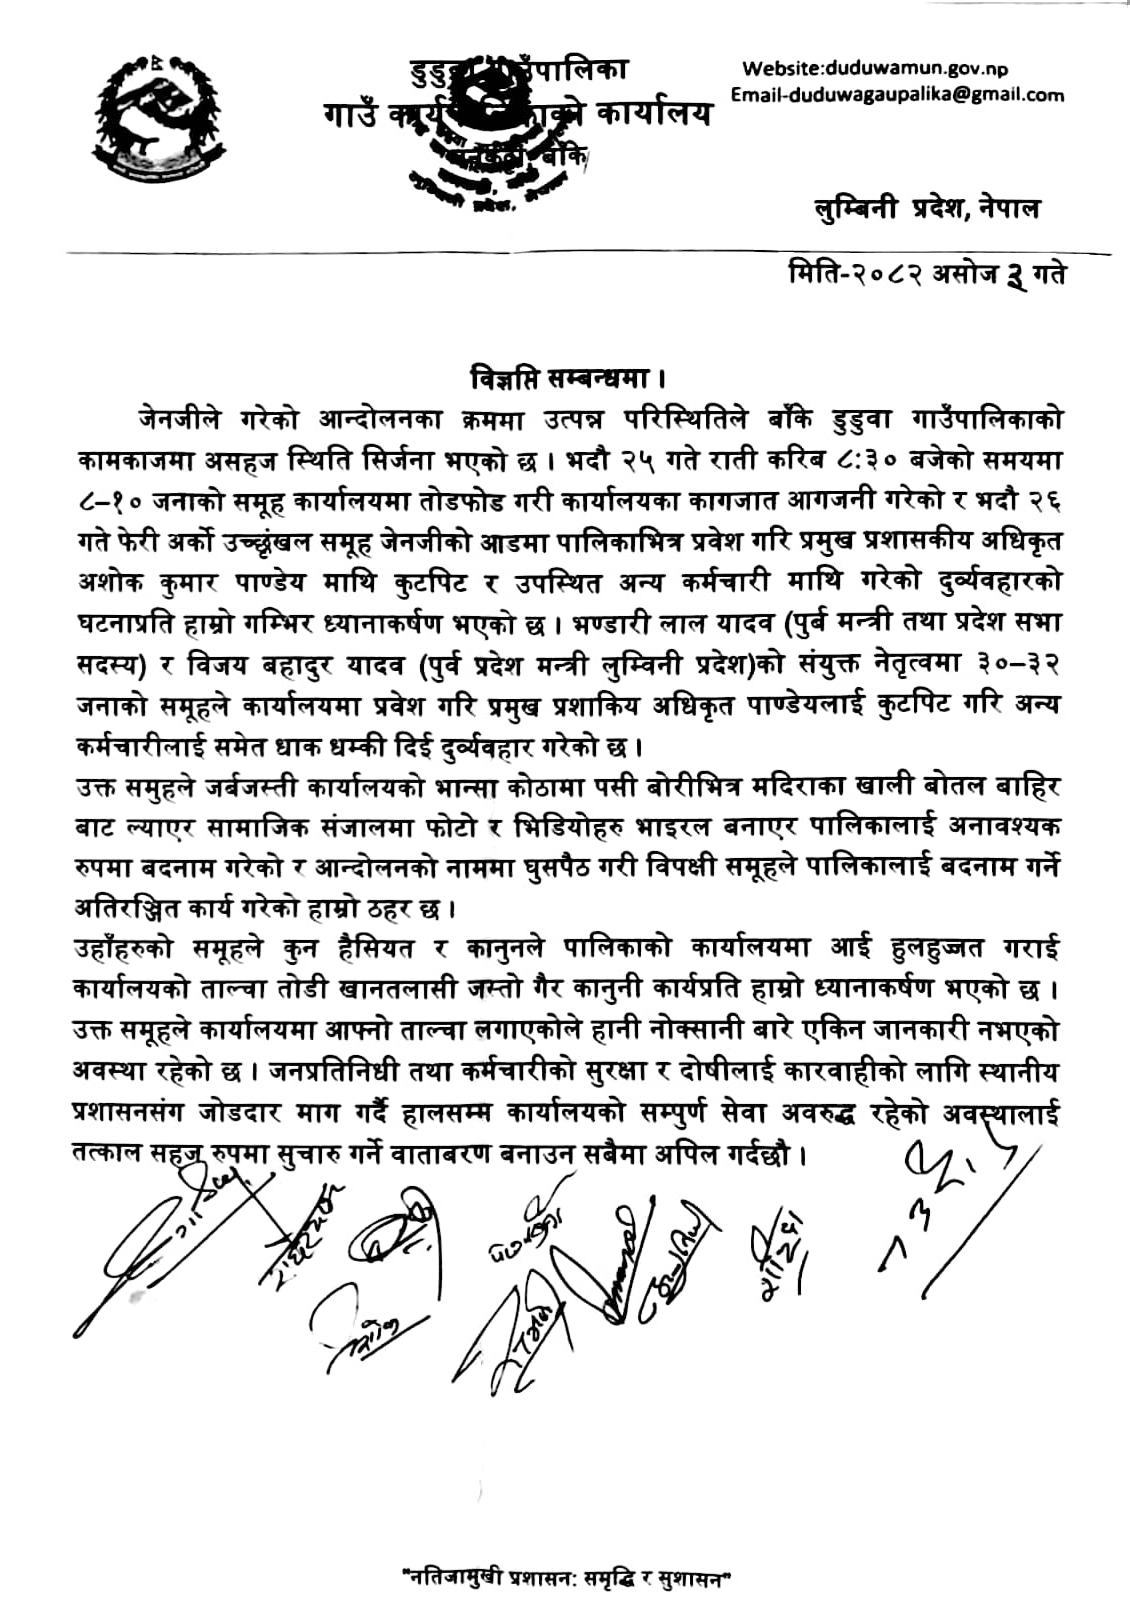 डुडुवा गाउँपालिका
गाउँ कार्यपालिकाको कार्यालय
बाँके
Website:duduwamun.gov.np
Email-duduwagaupalika@gmail.com
लुम्बिनी प्रदेश, नेपाल
मिति-२०८२ असोज ३ गते
विज्ञप्ति सम्बन्धमा ।
जेनजीले गरेको आन्दोलनका क्रममा उत्पन्न परिस्थितिले बाँके डुडुवा गाउँपालिकाको
कामकाजमा असहज स्थिति सिर्जना भएको छ । भदौ २५ गते राती करिब ८:३० बजेको समयमा
८–१० जनाको समूह कार्यालयमा तोडफोड गरी कार्यालयका कागजात आगजनी गरेको र भदौ २६
गते फेरी अर्को उच्छृंखल समूह जेनजीको आडमा पालिकाभित्र प्रवेश गरि प्रमुख प्रशासकीय अधिकृत
अशोक कुमार पाण्डेय माथि कुटपिट र उपस्थित अन्य कर्मचारी माथि गरेको दुर्व्यवहारको
घटनाप्रति हाम्रो गम्भिर ध्यानाकर्षण भएको छ । भण्डारी लाल यादव (पुर्ब मन्त्री तथा प्रदेश सभा
सदस्य) र विजय बहादुर यादव (पुर्व प्रदेश मन्त्री लुम्विनी प्रदेश)को संयुक्त नेतृत्वमा ३०–३२
जनाको समूहले कार्यालयमा प्रवेश गरि प्रमुख प्रशाकिय अधिकृत पाण्डेयलाई कुटपिट गरि अन्य
कर्मचारीलाई समेत धाक धम्की दिई दुर्व्यवहार गरेको छ ।
उक्त समुहले जर्बजस्ती कार्यालयको भान्सा कोठामा पसी बोरीभित्र मदिराका खाली बोतल बाहिर
बाट ल्याएर सामाजिक संजालमा फोटो र भिडियोहरु भाइरल बनाएर पालिकालाई अनावश्यक
रुपमा बदनाम गरेको र आन्दोलनको नाममा घुसपैठ गरी विपक्षी समूहले पालिकालाई बदनाम गर्ने
अतिरञ्जित कार्य गरेको हाम्रो ठहर छ ।
उहाँहरुको समूहले कुन हैसियत र कानुनले पालिकाको कार्यालयमा आई हुलहुज्जत गराई
कार्यालयको ताल्चा तोडी खानतलासी जस्तो गैर कानुनी कार्यप्रति हाम्रो ध्यानाकर्षण भएको छ ।
उक्त समूहले कार्यालयमा आफ्नो ताल्चा लगाएकोले हानी नोक्सानी बारे एकिन जानकारी नभएको
अवस्था रहेको छ । जनप्रतिनिधी तथा कर्मचारीको सुरक्षा र दोषीलाई कारवाहीको लागि स्थानीय
प्रशासनसंग जोडदार माग गर्दै हालसम्म कार्यालयको सम्पुर्ण सेवा अवरुद्ध रहेको अवस्थालाई
तत्काल सहज रुपमा सुचारु गर्ने वाताबरण बनाउन सबैमा अपिल गर्दछौ ।
"नतिजामुखी प्रशासन: समृद्धि र सुशासन"